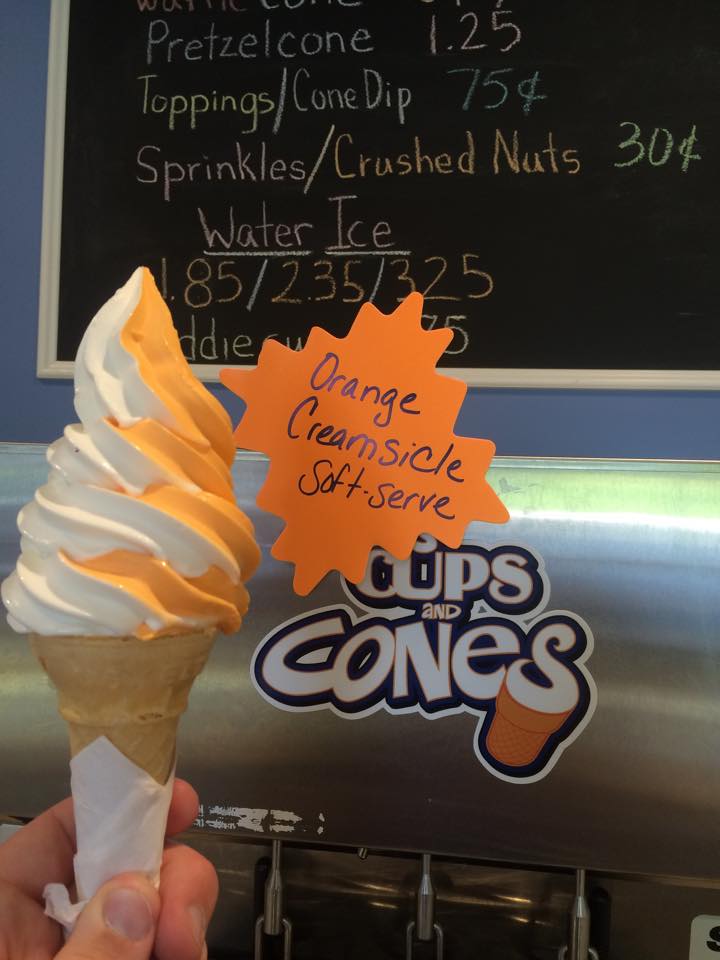 Waffle Cone
Pretzelcone 1.25
Toppings/Cone Dip 75¢
Sprinkles/Crushed Nuts 30¢
Water Ice
.85/2.35/325
5
Orange
Creamsicle
Soft-serve
CUPS
AND
CONES